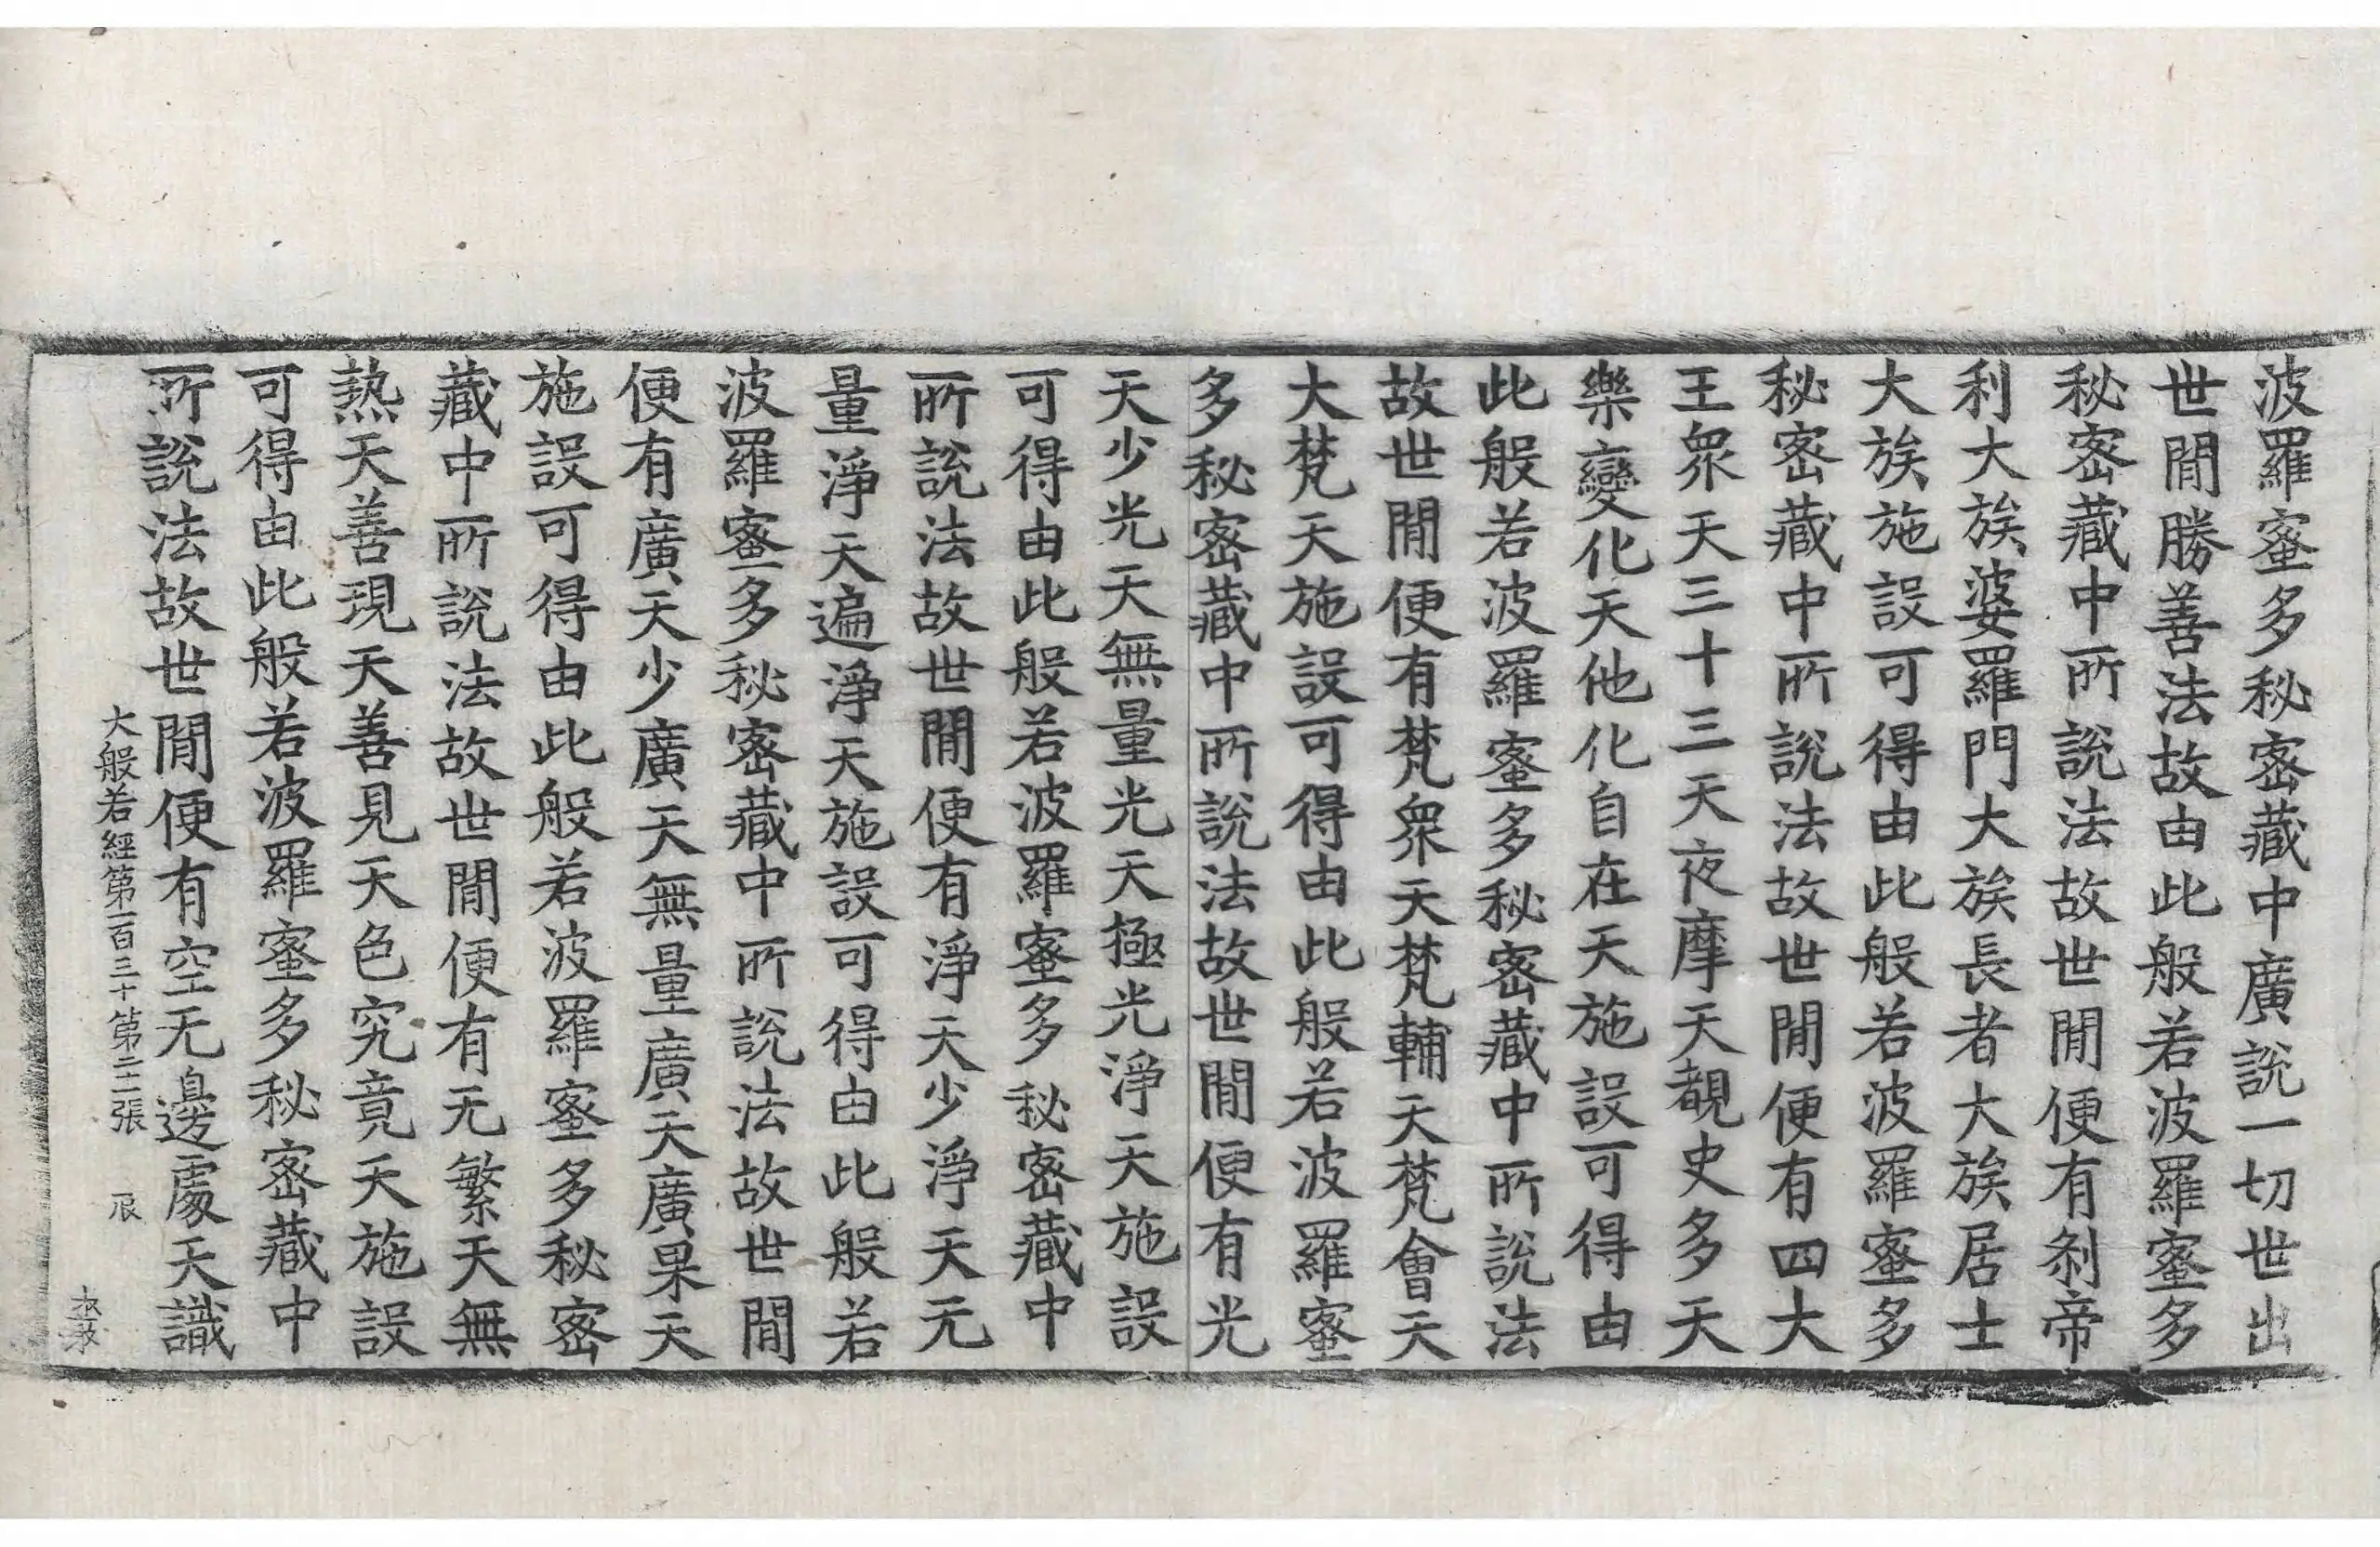 波羅蜜多秘密藏中廣說一切世出
世閒勝善法故由此般若波羅蜜多
秘密藏中所說法故世閒便有刹帝
利大族婆羅門大族長者大族居士
大族施設可得由此般若波羅蜜多
秘密藏中所說法故世閒便有四大
王衆天三十三天夜摩天覩史多天
樂變化天他化自在天施設可得由
此般若波羅蜜多秘密藏中所說法
故世閒便有梵衆天梵輔天梵會天
大梵天施設可得由此般若波羅蜜
多秘密藏中所說法故世閒便有光
天少光天無量光天極光淨天施設
可得由此般若波羅蜜多秘密藏中
所說法故世閒便有淨天少淨天无
量淨天遍淨天施設可得由此般若
波羅蜜多秘密藏中所說法故世閒
便有廣天少廣天無量廣天廣果天
施設可得由此般若波羅蜜多秘密
藏中所說法故世閒便有无繁天無
熱天善現天善見天色究竟天施設
可得由此般若波羅蜜多秘密藏中
所說法故世閒便有空无邊處天識
大般若經第一百三十第二張